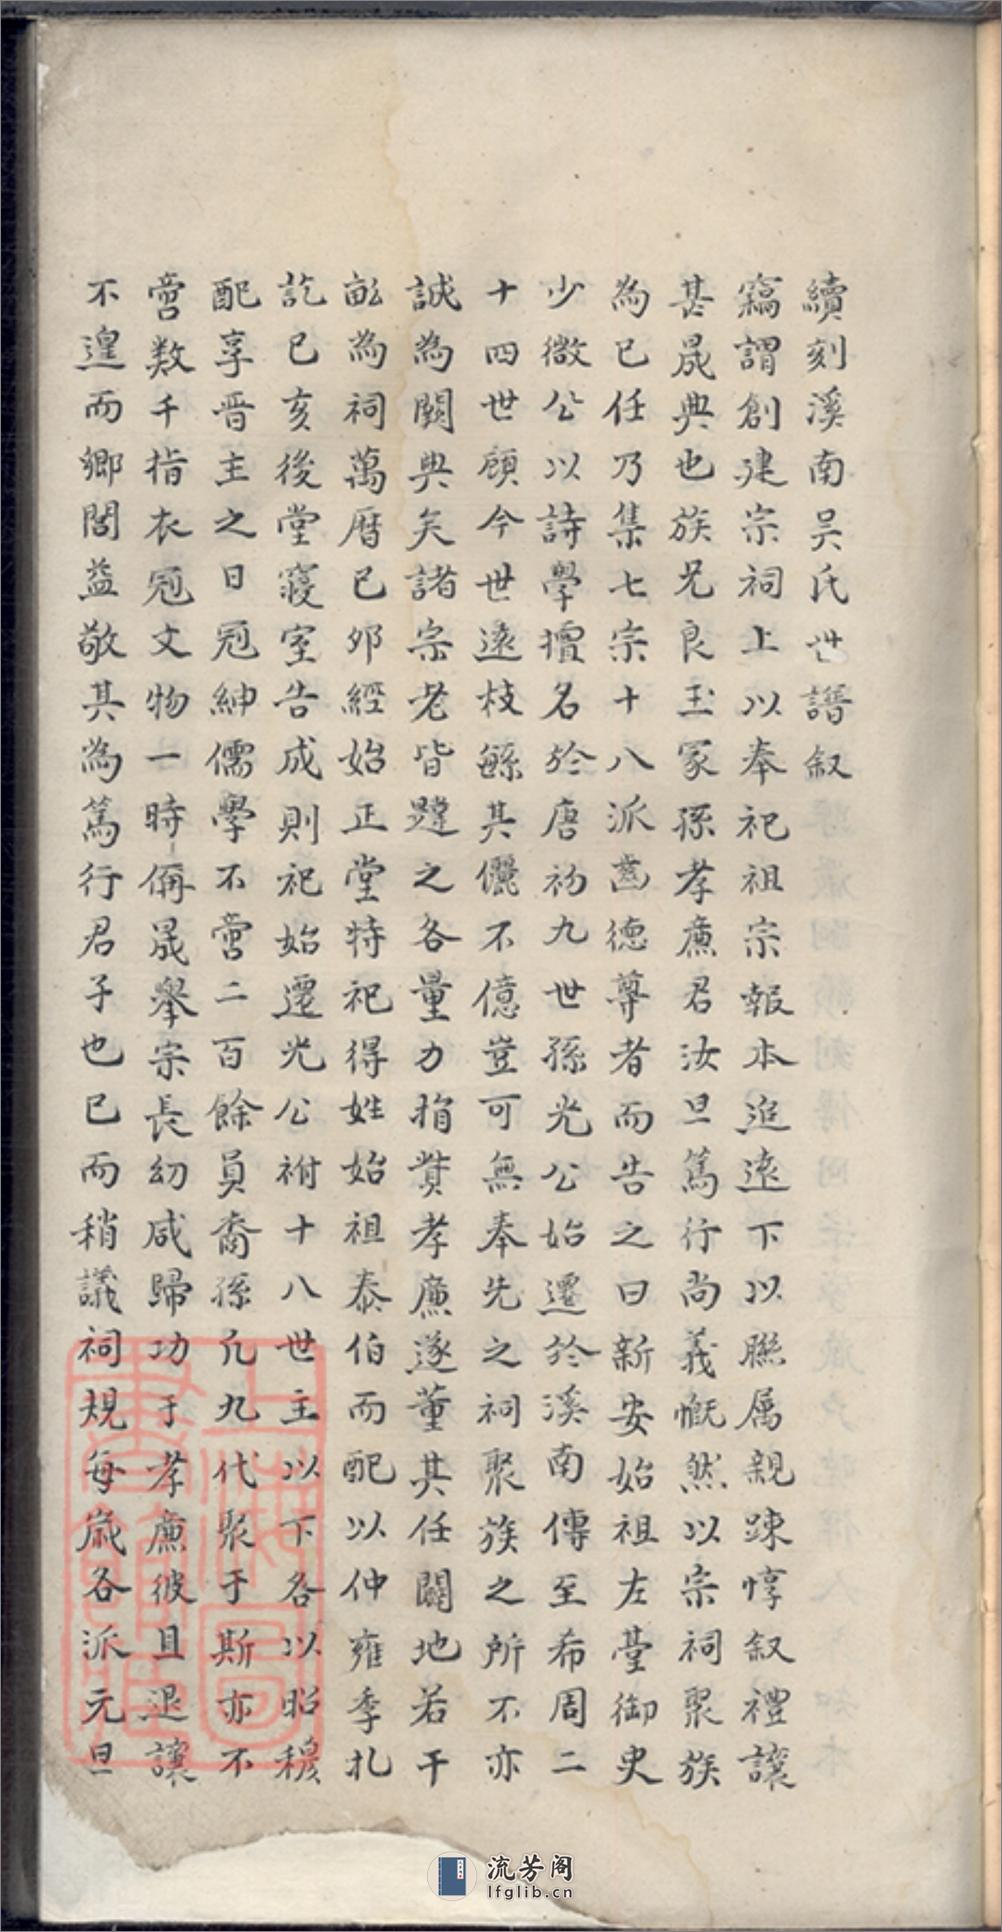 續刻溪南吴氏世譜叙
竊謂創建宗祠上以奉祀祖宗報本追逺下以聮属親踈惇叙禮讓
甚晟典也族兄良玉冢孫孝亷君汝旦篤行尚義慨然以宗祠聚族
為已任乃集七宗十八派齒德尊者而告之曰新安始祖左䑓御史
少微公以詩學擅名於唐初九世孫光公始遷於溪南傳至希周二
十四世顧今世逺枝繇其儷不億豈可無奉先之祠聚族之所不亦
誠為闕典矣諸宗老皆韙之各量力捐貲孝亷遂董其任闢地若干
畆為祠萬曆已夘經始正堂特祀得姓始祖泰伯而配以仲雍季札
訖已亥後堂寢室告成則祀始遷光公祔十八世主以下各以昭穆
配享晋主之日冠紳儒學不啻二百餘員裔孫凢九代聚于斯亦不
啻数千指衣冠文物一時侢晟舉宗長幼咸歸功于孝亷彼且退讓
不遑而鄉閭益敬其為篤行君子也已而稍議祠規每歲各派元旦
上海圖書館藏
流芳阁
lfglib.cn